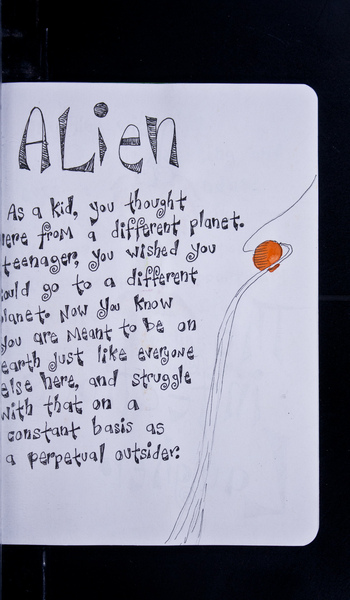 ALien
As a kid, you thought
ere from a different planet.
teenager, you wished you
ould go to a different
lanet. Now you know
you are meant to be on
earth just like everyone
else here, and struggle
with that on a
constant basis as
a perpetual outsider.